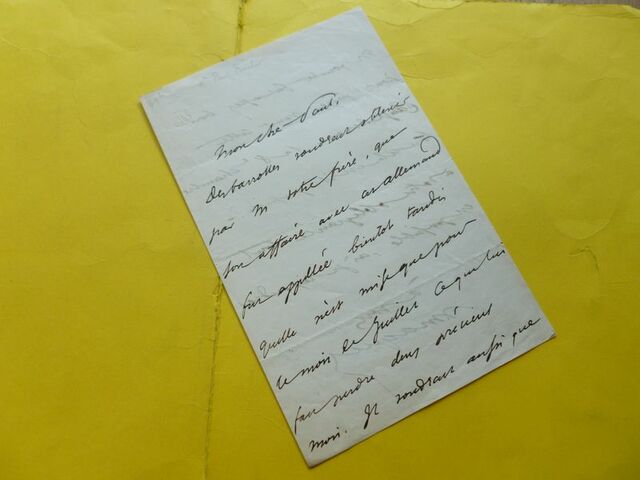 Mon cher Paul,
Desbarrolles voudrait obtenir
par M votre frère, que
son affaire avec cet allemand
fut appellée bientot tandis
quelle n'est mise que pour
le mois de Juillet ce qui lui
fait perdre deux
mois. Il voudrait aussi que